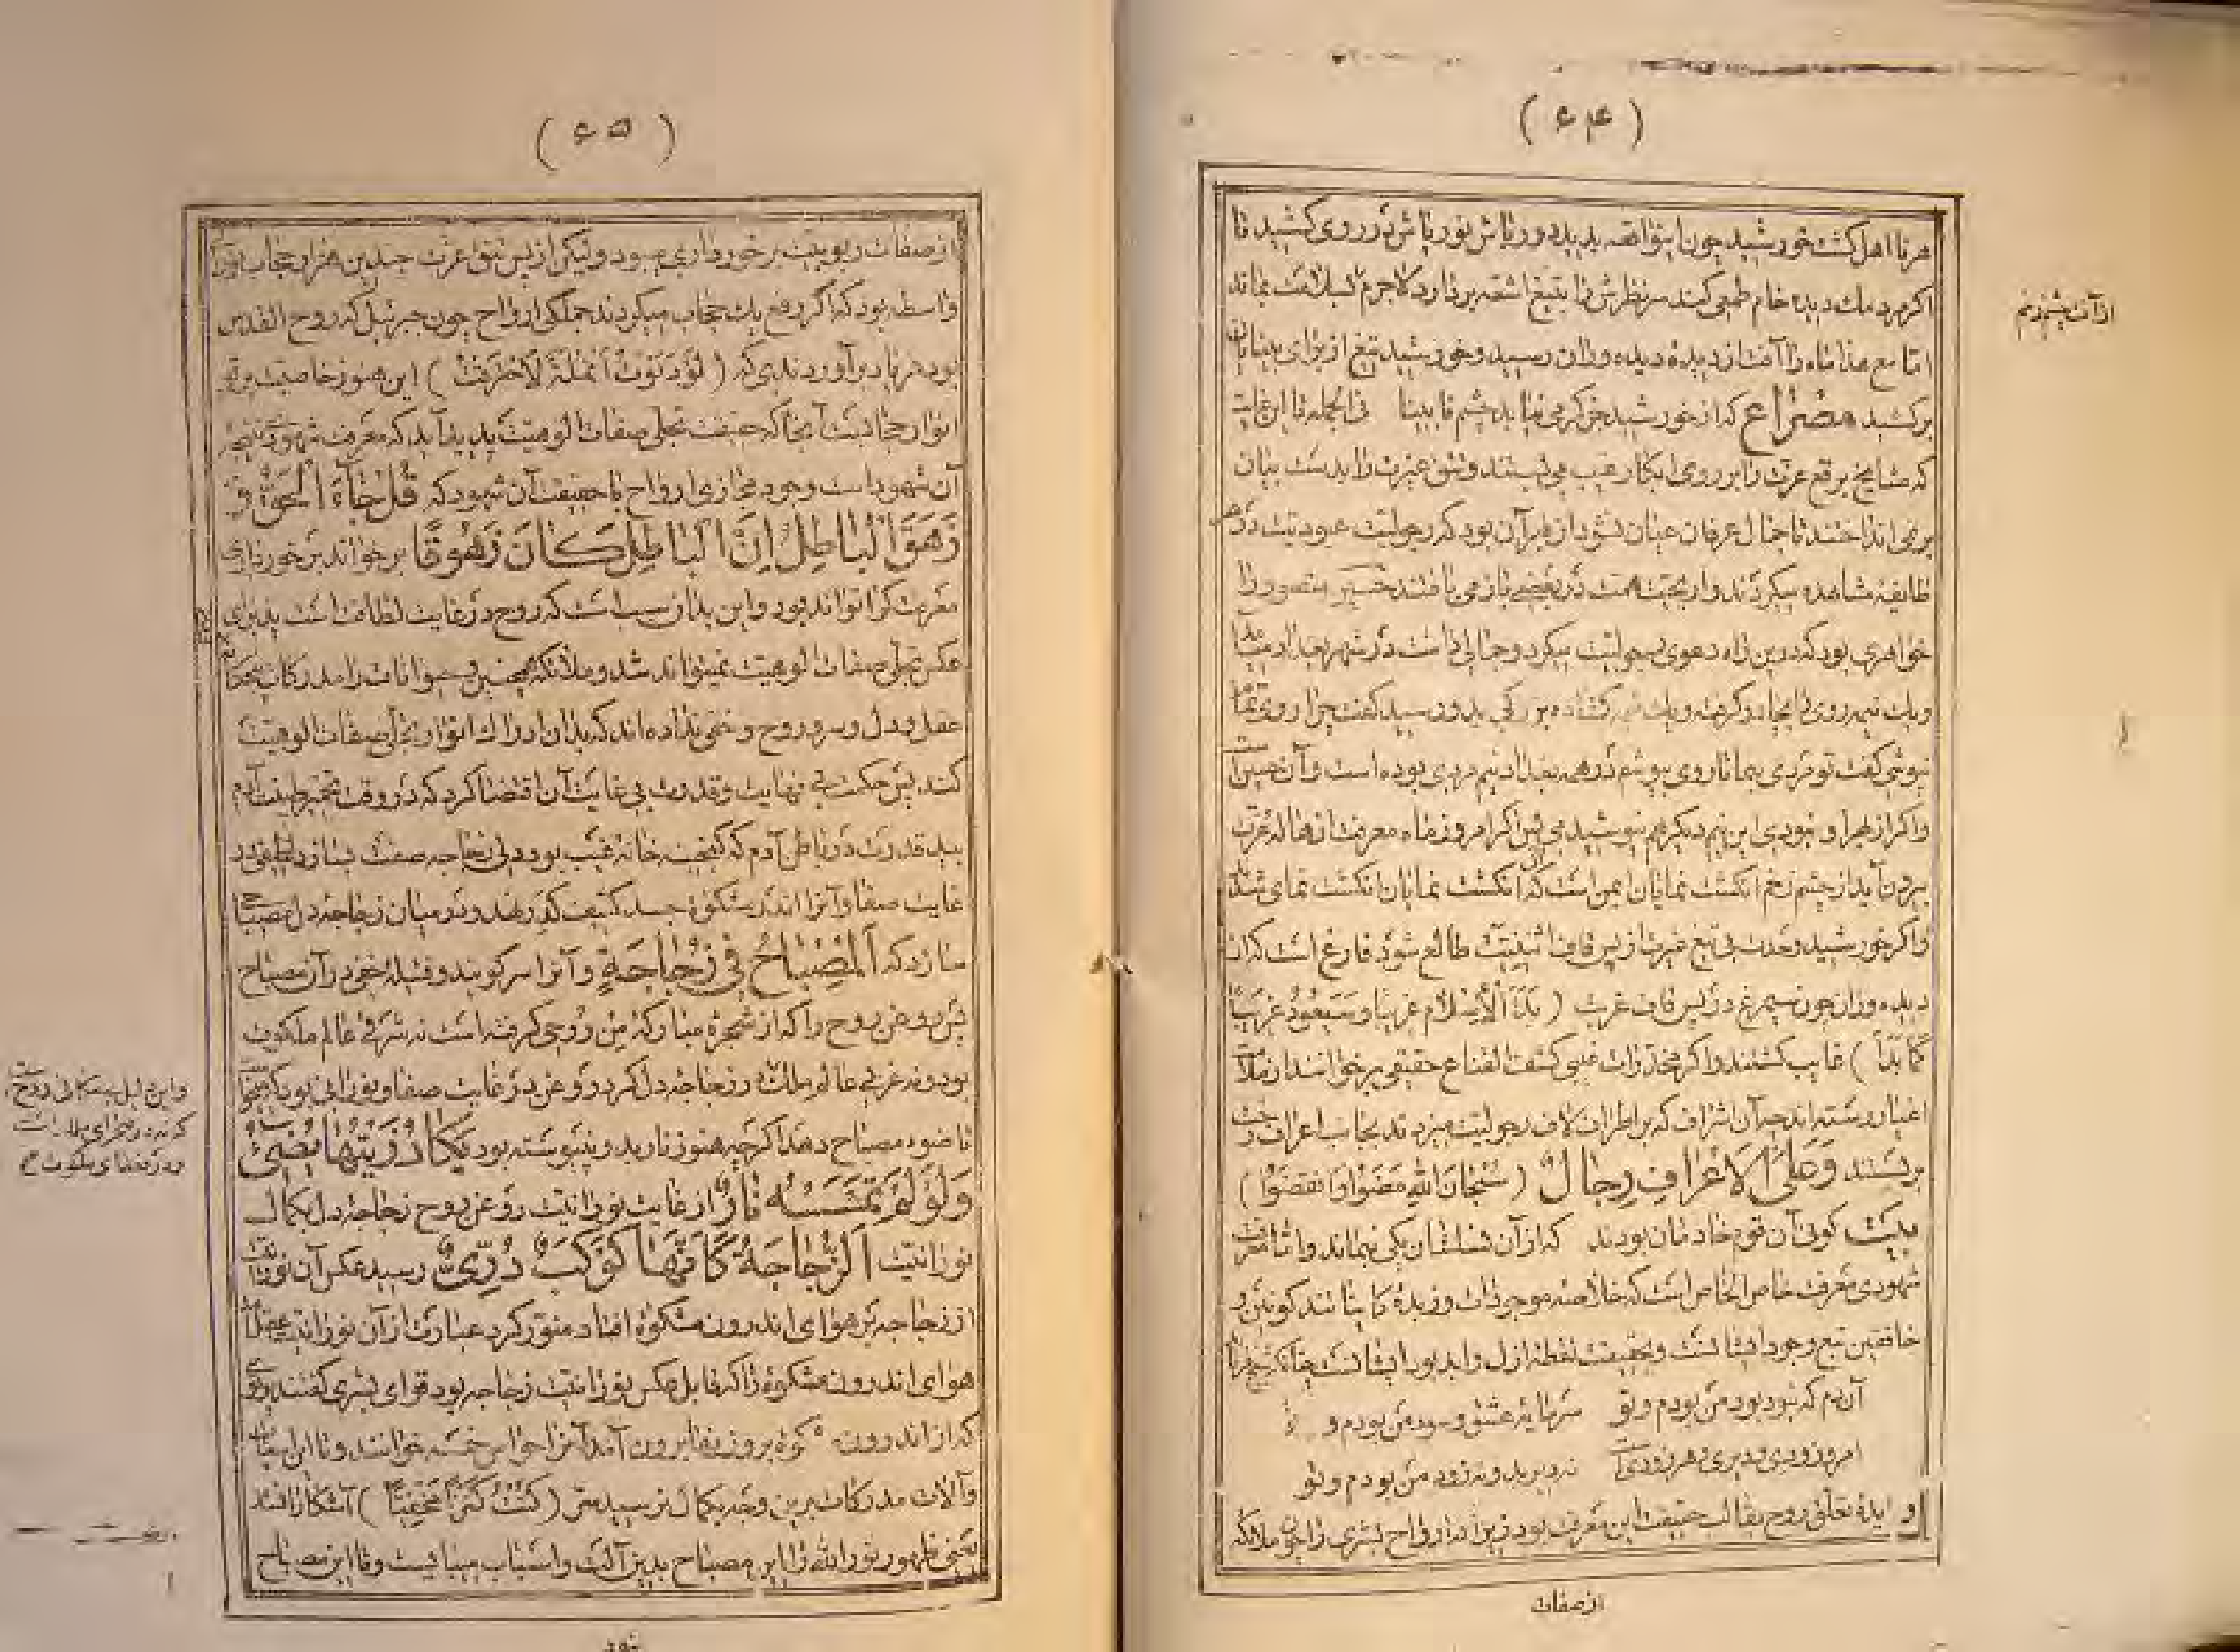 (۶۴)
هر نااهل کشت خورشید چون این واقعه بدید دورباش نورپاش در روی کشید تا
اگر مردمك دیده خام طمعی کند سر نظرش را بتیغ اشعه بردارد لاجرم بسلامت بماند
اما مع هذا ماه را آفت از دیده دیده وران رسید و خورشید تیغ از برای بینایان
برکشید مصراع که از خورشید جز گرمی نیابد چشم نابینا فی الجمله تا این غایت
که مشایخ برقع عزت را بر روی ابکار غیب می بستند و تتق غیرت را بدست بیان
بر می انداختند تا جمال عرفان عیان نشود از برای آن بود که رجولیت عبودیت در هر
طایفه مشاهده میکردند و ابختیت همت در بعضی باز می یافتند حسین منصور را
خواهری بود که درین راه دعوی رجولیت میکرد و جمالی داشت در شهر بغداد می آمد
و یك نیمه روی را بچادر گرفته و یك نیمه گشاده بزرگی بدو رسید گفت چرا روی تمام
نپوشی گفت تو مردی بنما تا روی بپوشم در همه بغداد نیم مردی بوده است و آن حسین است
و اگر از بهر او نبودی این نیم دیگر هم نپوشیدمی پس اگر امروز ماه معرفت از هاله عزت
بیرون آید از چشم زخم انگشت نمایان ایمن است که آن انگشت نمایان انگشت نمای شدند
و اگر خورشید وحدت بی تیغ غیرت از پس قاف اثنینیت طالع شود فارغ است که از
دیده وران چون سیمرغ در پس قاف غربت (بَدَءَ الْاِسْلام غریبا و سَیَعُودُ غریبًا
کَمَا بَدَأَ) غایب گشتند و اگر مخدرات غیبی کشف القناع حقیقی برخوانند از ملامت
اغیار رسته اند چه آن اشراف که بر اطراف لاف رجولیت میزدند بجانب اعراف رخت
بربستند وَعَلَی الْاَعْرَافِ رِجَالٌ (سُبْحَانَ اللهِ مَضَوْا وَانْقَضَوْا)
بیت گوئی آن قوم خادمان بودند که از آن نسلشان یکی بنماند و اما معرفت
شهودی معرفت خاص الخاص است که خلاصه موجودات و زبدهٔ کاینانند کونین و
خافقین تبع وجود ایشانست و بحقیقت نقطه ازل و ابد بود ایشانست چنانکه شیخ فرماید
آن دم که نبود بود من بودم و تو سرمایه عشق و سود من بودم و تو
امروز و دی و دیری و هر زودی است نه دیر بد و نه زود من بودم و تو
و فایدهٔ تعلق روح بقالب حقیقت این معرفت بود زیرا که ارواح بشری را چون ملائکه
از صفات
از آن چشم زخم
(۶۵)
از صفات ربوبیت برخورداری میبود ولیکن از پس تتق عزت چندین هزار حجاب نورانی
واسطه بود که اگر رفع یك حجاب میکردند جملگی ارواح چون جبرئیل که روح القدس
بود فریاد برآوردندی که (لَوْ دَنَوْتُ اَنْمُلَةً لَاحْتَرَقْتُ) این هنوز خاصیت پرتو
انوار حجابست آنجا که حقیقت تجلی صفات الوهیت پدید آید که معرفت شهودی نتیجهٔ
آن شهود است وجود مجازی ارواح با حقیقت آن شهود که قُلْ جَآءَ الْحَقُّ وَ
زَهَقَ الْبَاطِلُ اِنَّ الْبَاطِلَ كَانَ زَهُوقًا برخواند برخورداری
معرفت کرا تواند بود و این بدان سبب است که روح در غایت لطافت است پذیرای
عکس تجلی صفات الوهیت نمیتواند شد و ملائکه همچنین و حیوانات را مدرکات پنجگانه
عقل و دل و سر و روح و خفی نداده اند که بدان ادراك انوار تجلی صفات الوهیت
کند پس حکمت بی نهایت و قدرت بی غایت آن اقتضا کرد که در وقت تخمیر طینت آدم
بید قدرت در باطن آدم که گنجینه خانه غیب بود دلی زجاجه صفت بسازد
غایت صفا و آنرا اندر مشکوة جسد کثیف کدر نهد و در میان زجاجه دل مصباحی
سازد که اَلْمِصْبَاحُ فِی زُجَاجَةٍ و آنرا سر گویند و فتیلهٔ خفی در آن مصباح
پس روغن روح را که از شجرهٔ مبارکه مِنْ رُوحِی گرفته است نه شرقی عالم ملکوت
بود و نه غربی عالم ملك در زجاجه دل کرد روغن در غایت صفا و نورانی بود که میخواست
تا ضوء مصباح دهد اگرچه هنوز نار بدو نپیوسته بود يَكَادُ زَيْتُهَا يُضِیءُ
وَلَوْ لَمْ تَمْسَسْهُ نَارٌ از غایت نورانیت روغن روح زجاجه دل بکمال
نورانیت اَلزُّجَاجَةُ كَاَنَّهَا كَوْكَبٌ دُرِّیٌّ رسید عکس آن نورانیت
از زجاجه بر هوای اندرون مشکوة افتاد منور کرد عبارت از آن نورانیت عقل آمد
هوای اندرون مشکوة را که قابل عکس نورانیت زجاجه بود قوای بشری گفتند و پرتوی
که از اندرون مشکوة بروزنها بیرون آمد آنرا حواس خمسه خوانند و تا این اسباب
و آلات مدرکات برین وجه بکمال نرسید سر (كُنْتُ كَنْزًا مَخْفِیًّا) آشکارا نشد
یعنی ظهور نور الله را این مصباح بدین آلت و اسباب میبایست و تا این مصباح
نبود